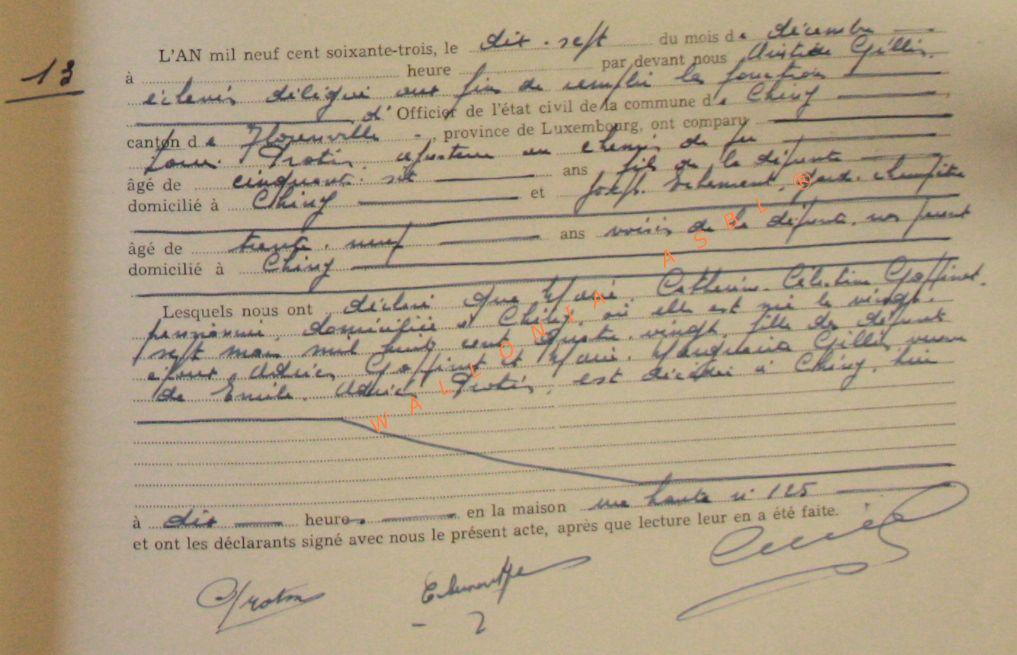 13
L'AN mil neuf cent soixante-trois, le dix-sept du mois de décembre
à heure par devant nous Aristide Gillis,
échevin délégué aux fins de remplir les fonctions
d'Officier de l'état civil de la commune de Chiny
canton de Florenville, province de Luxembourg, ont comparu
Protin, ajusteur au chemin de fer
âgé de cinquante-sept ans fils de la défunte
domicilié à Chiny et Joseph garde champêtre
âgé de trente-neuf ans voisin de la défunte, non parent
domicilié à Chiny
Lesquels nous ont déclaré que Marie Catherine Célestine Goffinet,
pensionnée, domiciliée à Chiny, où elle est née le vingt-
sept mars mil huit cent quatre-vingt, fille des défunts
époux Adrien Goffinet et Marie Marguerite Gillis, veuve
de Emile Adrien Protin, est décédée à Chiny, hier
à dix heure en la maison rue haute n° 125
et ont les déclarants signé avec nous le présent acte, après que lecture leur en a été faite.
WALLONIA ASBL ®
Protin